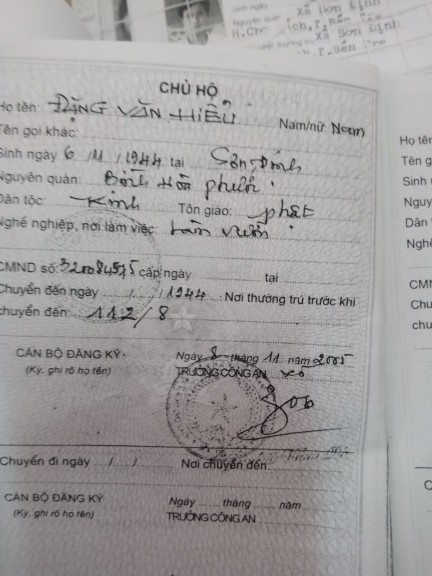 Xã Sơn Định
Nguyên quán
H.Chợ
ích, T.
Xã Sơn Định
T. Bến Tre
CHỦ HỘ
Họ tên: ĐẶNG VĂN HIẾU Nam/nữ: Nam
Tên gọi khác:
Sinh ngày 6/11/1944 tại Sơn Định
Nguyên quán: Bình Hòa phước
Dân tộc: Kinh Tôn giáo: phật
Nghề nghiệp, nơi làm việc: Làm vườn
CMND số: cấp ngày tại
Chuyển đến ngày / /1944. Nơi thường trú trước khi
chuyển đến: 112/8
CÁN BỘ ĐĂNG KÝ Ngày 8 tháng 11 năm 2005
(Ký, ghi rõ họ tên) TRƯỞNG CÔNG AN xã
Chuyển đi ngày / / Nơi chuyển đến
CÁN BỘ ĐĂNG KÝ Ngày tháng năm
(Ký, ghi rõ họ tên) TRƯỞNG CÔNG AN
Họ tên
Tên g
Sinh
Nguy
Dân
Nghề
CM
Chu
chu
C